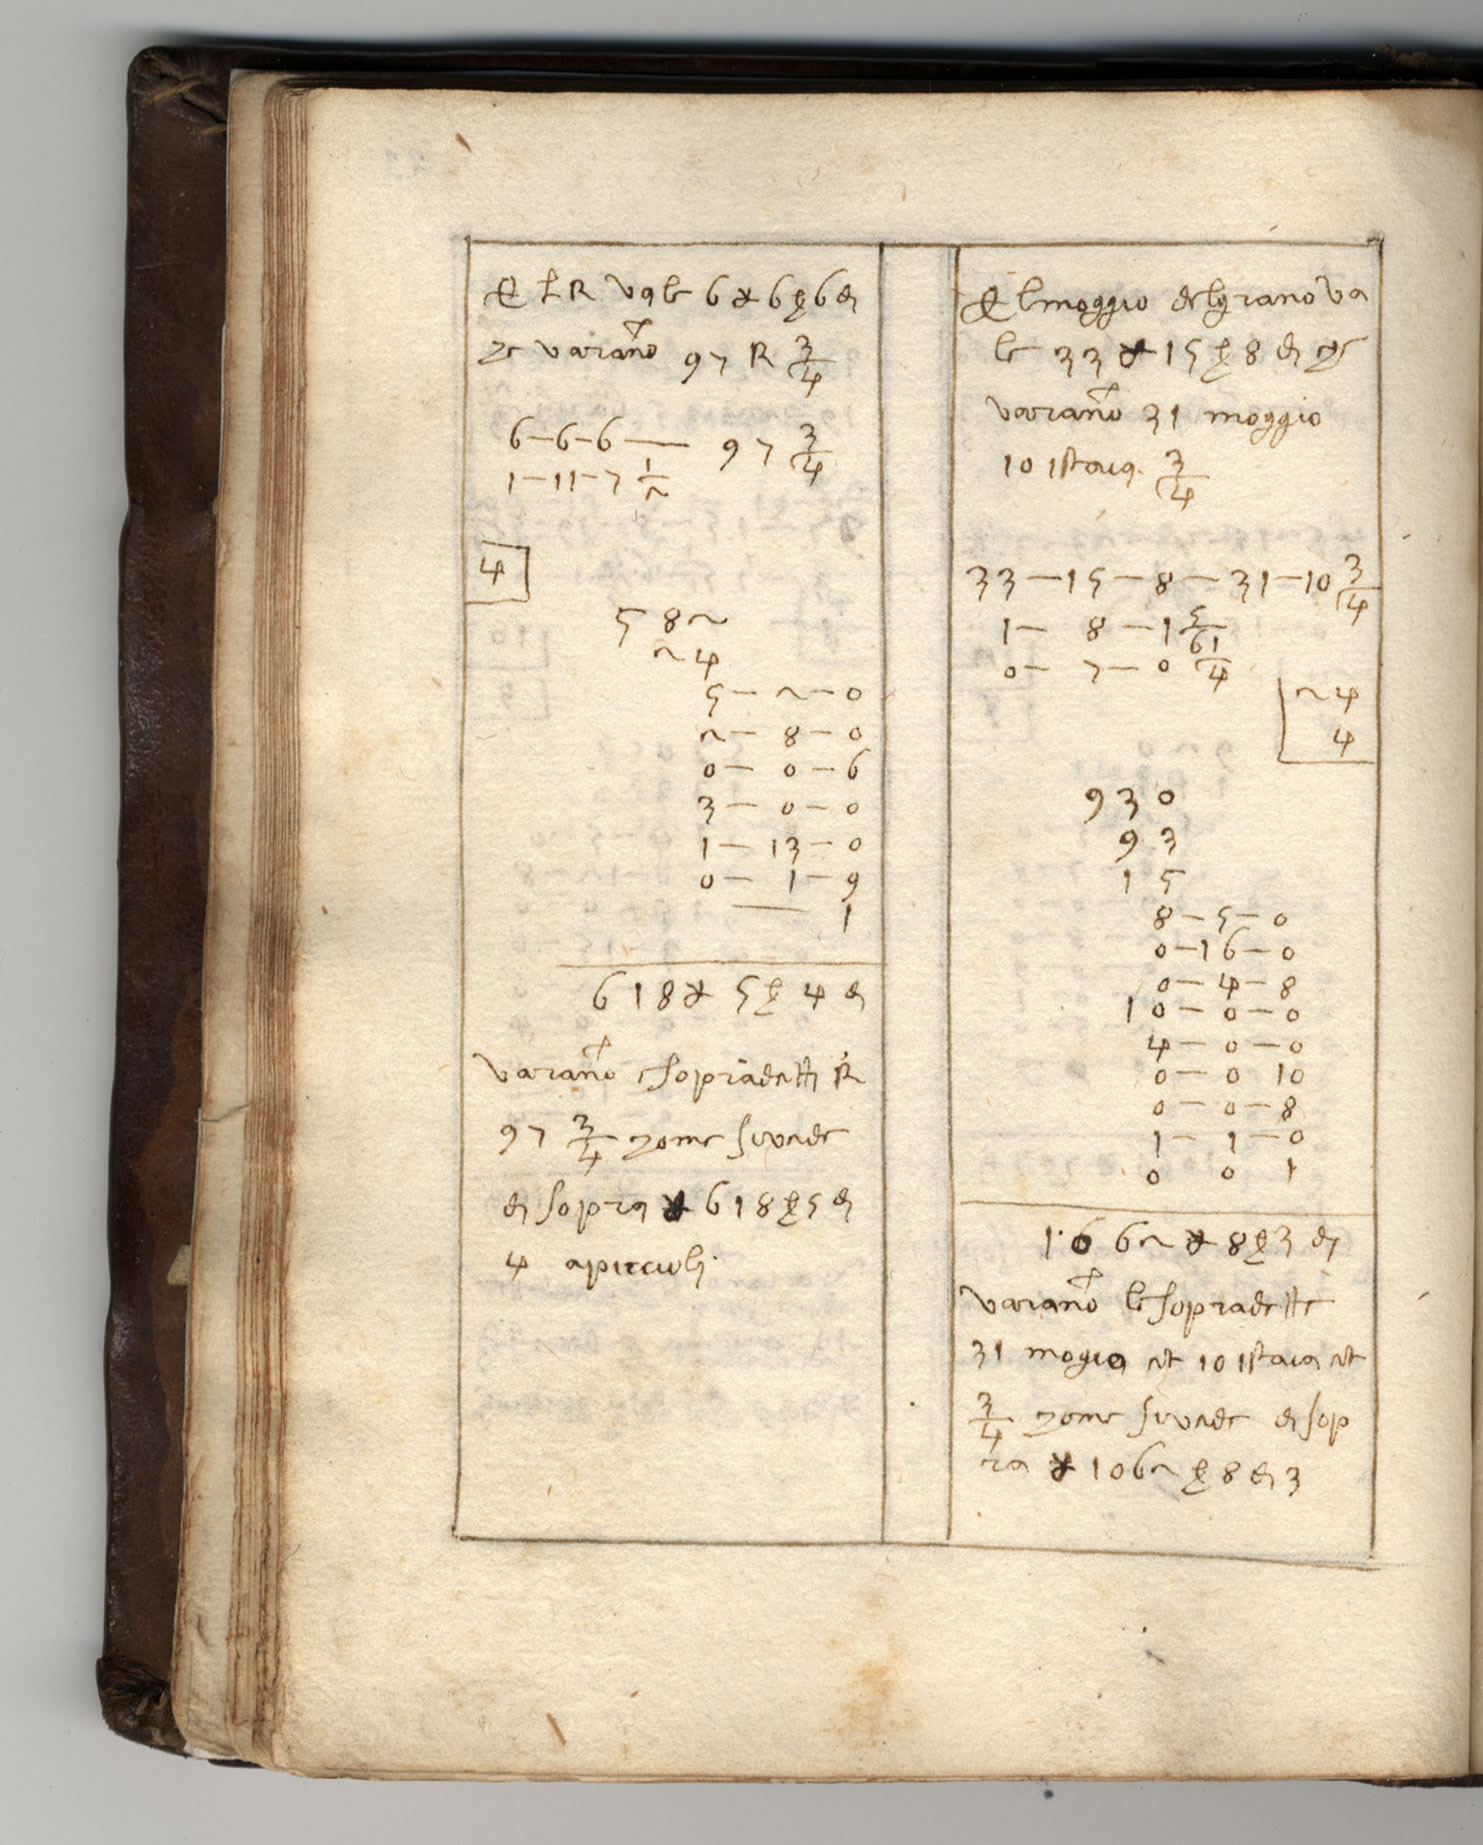 El R vale 6 ▽ 6 ß 6 di
che varano 97 R 3/4
6—6—6 — 97 3/4
1—11—7 1/2
4
5 8 2
2 4
5 — 2 — 0
2 — 8 — 0
0 — 0 — 6
3 — 0 — 0
1 — 13 — 0
0 — 1 — 9
— 1
618 ▽ 5 ß 4 di
varano e sopradetti R
97 3/4 come si vede
di sopra ▽ 618 ß 5 di
4 a piccioli
El moggio del grano va
le 33 ▽ 15 ß 8 di che
varano 31 moggio
10 istaia 3/4
33 — 15 — 8 — 31 — 10 3/4
1 — 8 — 1 5/6
0 — 7 — 0 1/4
24
4
930
93
15
8 — 5 — 0
0 — 16 — 0
0 — 4 — 8
10 — 0 — 0
4 — 0 — 0
0 — 0 10
0 — 0 — 8
1 — 1 — 0
0 0 1
1062 ▽ 8 ß 3 di
varano le sopradette
31 mogia et 10 istaia et
3/4 come si vede di sop
ra ▽ 1062 ß 8 di 3